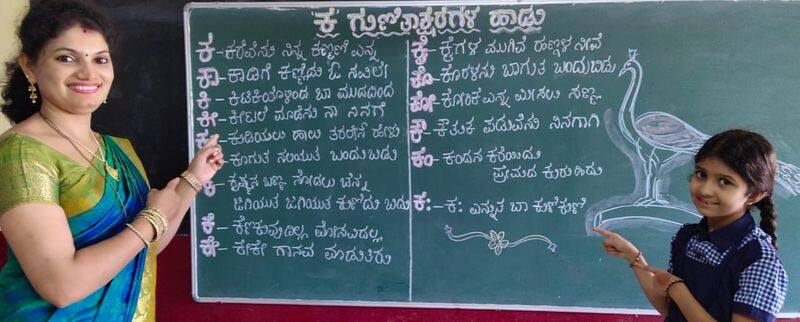 ಕ ಗುಣಿತಾಕ್ಷರಗಳ ಹಾಡು
ಕ - ಕರೆವೆನು ನಿನ್ನ ಕಣ್ಮಣಿ ಎನ್ನ
ಕಾ - ಕಾಡಿಗೆ ಕಣ್ಣಿದು ಓ ನವಿಲೇ
ಕಿ - ಕಿಟಕಿಯೊಳಗಿಂದ ಬಾ ಮುದದಿಂದ
ಕೀ - ಕೀಟಲೆ ಮಾಡೆನು ನಾ ನಿನಗೆ
ಕು - ಕುಡಿಯಲು ಹಾಲು ತರಲೇನೆ ಹೇಳು
ಕೂ - ಕೂಗುತ ನಲಿಯುತ ಬಂದುಬಿಡು
ಕೃ - ಕೃಷ್ಣನ ಬಣ್ಣ ನೋಡಲು ಚೆನ್ನ
ಜಿಗಿಯುತ ಜಿಗಿಯುತ ಕುಣಿದು ಬಿಡು
ಕೆ - ಕೆಣಕುವುದಿಲ್ಲ ಮೋಸವಿದಲ್ಲ
ಕೇ - ಕೇಕೇ ಗಾನವ ಮಾಡುತಿರು
ಕೈ - ಕೈಗಳ ಮುಗಿವೆ ಹಣ್ಣುಗಳ ನೀವೆ
ಕೊ - ಕೊರಳನು ಬಾಗುತ ಬಂದುಬಿಡು
ಕೋ - ಕೋರಿಕೆ ಎನ್ನ ಮೀಸಲು ನಿನ್ನ
ಕೌ - ಕೌತುಕ ಪಡುವೆನು ನಿನಗಾಗಿ
ಕಂ - ಕಂದನ ಕರೆಯಿದು
ಪ್ರೇಮದ ಕುರುಹಿದು
ಕಃ - ಕಃ ಎನ್ನುತ ಬಾ ಕುಣಿಕುಣಿ